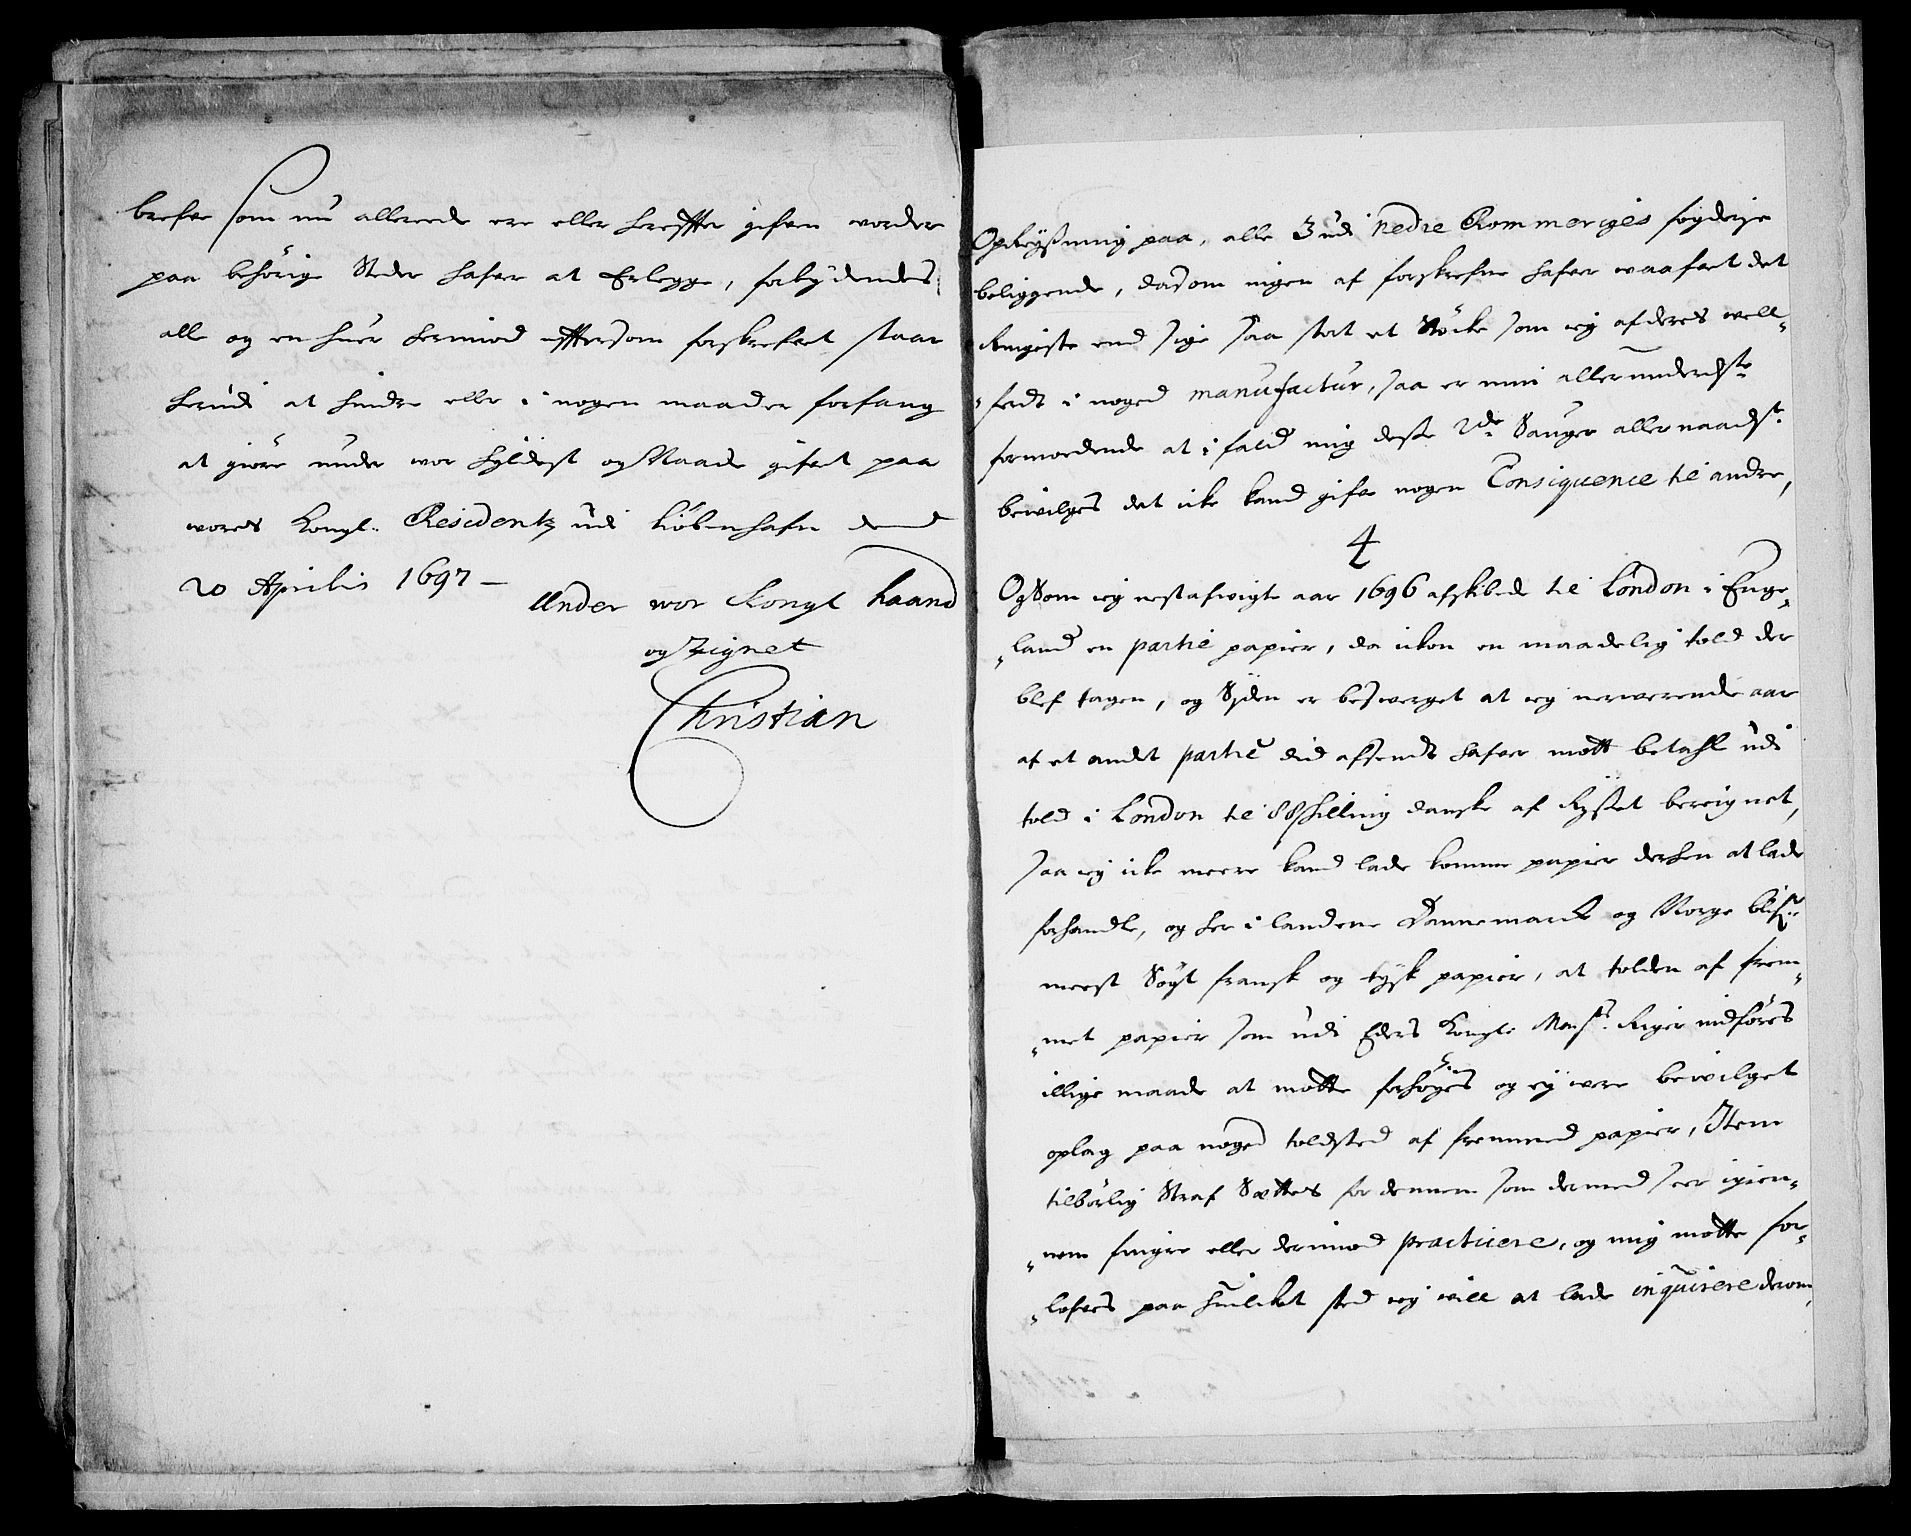 brefve som nu allerede ere eller herefter gifven vorder
paa behörige Steder hafver at Erlegge, forbydendes
alle og en huer hermod eftersom forskrefvet staar
herudi at hindre eller i nogen maader forfang
at giöre under vor hyldest og Naade gifvet paa
vores Kongl. Residentz udi Kiöbenhafn dend
20 Aprilis 1697 —
Under vor Kongl haand
og Zignet
Christian
Opbygßning paa, alle 3 udi Nedre Rommeriges fogderje
beliggende, dasom ingen af forskrefne hafver vaafvet det
ringiste end sige saa stort et Stöcke som ieg af deres vell-
-ferdt i noged manufactur, saa er min allerunderdste
formodende at i fald mig deße 2de Sauger allernaadst.
bevilges det icke kand gifve nogen Consiquence til andre,
4
Og Som ieg nestafvigte aar 1696 afskibede til London i Enge-
-land en partie papier, da ickon en maadelig told der
blef tagen, og Siden er besverget at ieg nerverende aar
af et andet partie did afsendt hafver mott betahl udi
told i London til 88 skilling danske af Ryßet beregnet,
saa ieg icke meere kand lade komme papier derhen at lade
forhandle, og her i landene Dannemarck og Norge blifver
meest Sögt fransk og tysk papier, at tolden af frem-
-met papier som udi Eders Kongl: Mayts. Riger indföres
illige maade at motte forhöges og ey vere bevilget
oplag paa noged toldsted af fremmed papier, Item
tilbörlig Straf Settes for dennem som dermed seer igien-
-nem fingre eller derimod practicere, og mig motte for-
-lofves paa huilcket sted ieg vill at lade inquirere derom,